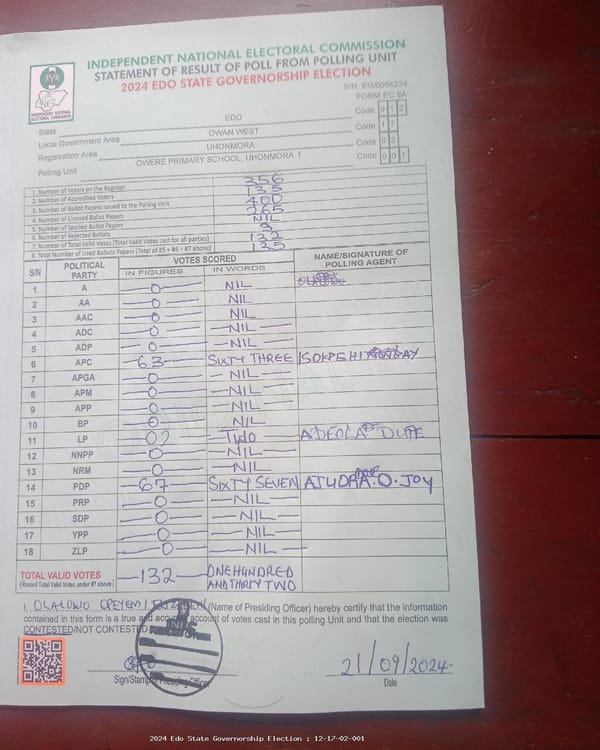 INDEPENDENT NATIONAL ELECTORAL COMMISSION
STATEMENT OF RESULT OF POLL FROM POLLING UNIT
2024 EDO STATE GOVERNORSHIP ELECTION
S/N: EG/0004224
FORM EC 8A
INEC
INDEPENDENT NATIONAL ELECTORAL COMMISSION
State EDO Code 0 1 2
Local Government Area OWAN WEST Code 1 7
Registration Area UHONMORA Code 0 2
Polling Unit OWERE PRIMARY SCHOOL, UHONMORA I Code 0 0 1
1. Number of Voters on the Register 356
2. Number of Accredited Voters 135
3. Number of Ballot Papers Issued to the Polling Unit 400
4. Number of Unused Ballot Papers 265
5. Number of Spoiled Ballot Papers NIL
6. Number of Rejected Ballots 3
7. Number of Total Valid Votes (Total Valid Votes cast for all parties) 132
8. Total Number of Used Ballots Papers (Total of #5 + #6 + #7 above) 135
S/N POLITICAL PARTY VOTES SCORED NAME/SIGNATURE OF POLLING AGENT
IN FIGURES IN WORDS
1 A 0 NIL
2 AA 0 NIL
3 AAC 0 NIL
4 ADC 0 NIL
5 ADP 0 NIL
6 APC 63 SIXTY THREE
7 APGA 0 NIL
8 APM 0 NIL
9 APP 0 NIL
10 BP 0 NIL
11 LP 02 TWO ADEOLA DUPE
12 NNPP 0 NIL
13 NRM 0 NIL
14 PDP 67 SIXTY SEVEN O. JOY
15 PRP 0 NIL
16 SDP 0 NIL
17 YPP 0 NIL
18 ZLP 0 NIL
TOTAL VALID VOTES 132 ONE HUNDRED AND THIRTY TWO
(Record Total Valid Votes under #7 above)
I, OLALOWO OPEYEMI (Name of Presiding Officer) hereby certify that the information
contained in this form is a true and accurate account of votes cast in this polling Unit and that the election was
CONTESTED/NOT CONTESTED
INEC
Sign/Stamp of Presiding Officer
21/09/2024
Date
2024 Edo State Governorship Election : 12-17-02-001